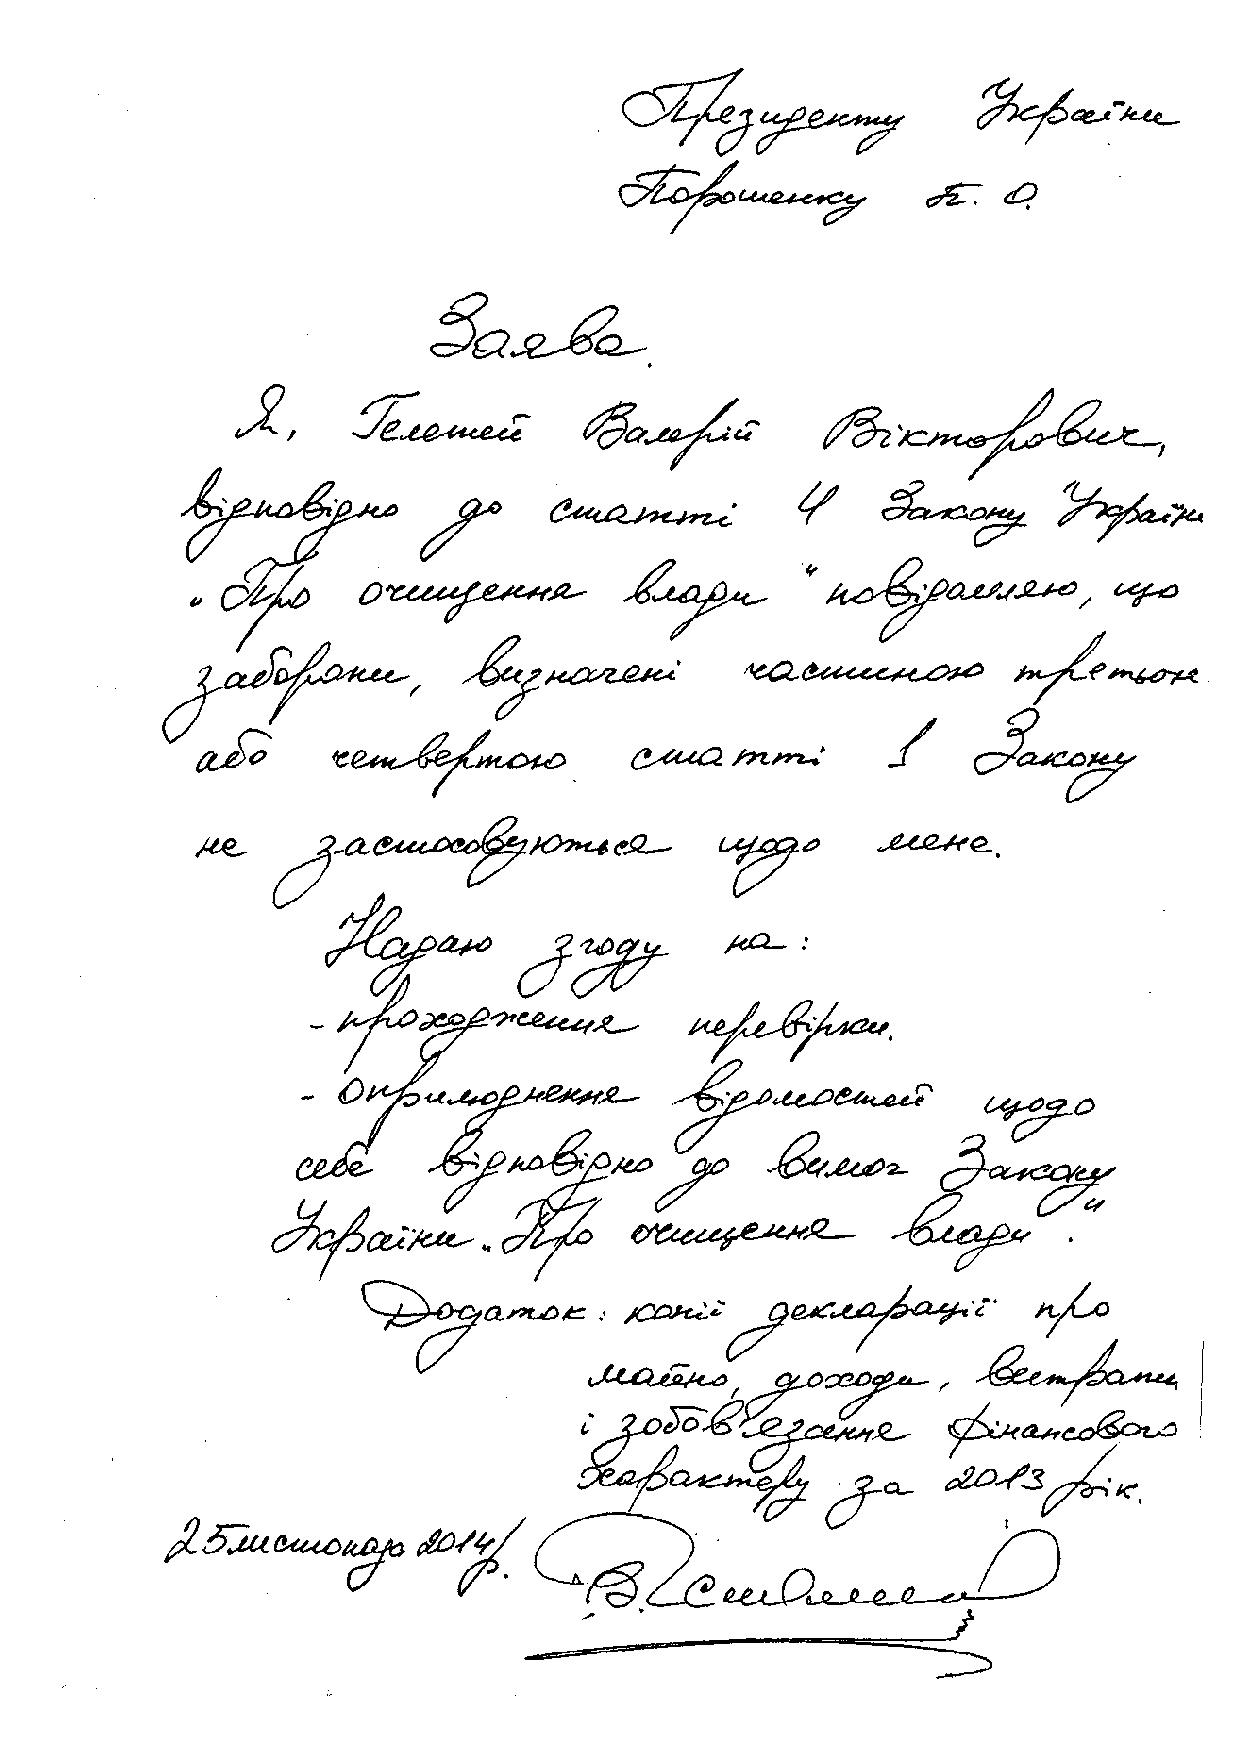 Президенту України
Порошенку П. О.
Заява.
Я, Гелетей Валерій Вікторович,
відповідно до статті 4 Закону України
„Про очищення влади" повідомляю, що
заборони, визначені частиною третьою
або четвертою статті 1 Закону
не застосовуються щодо мене.
Надаю згоду на:
- проходження перевірки.
- оприлюднення відомостей щодо
себе відповідно до вимог Закону
України „Про очищення влади".
Додаток: копії декларації про
майно, доходи, витрати
і зобов'язання фінансового
характеру за 2013 рік.
25 листопада 2014 р.